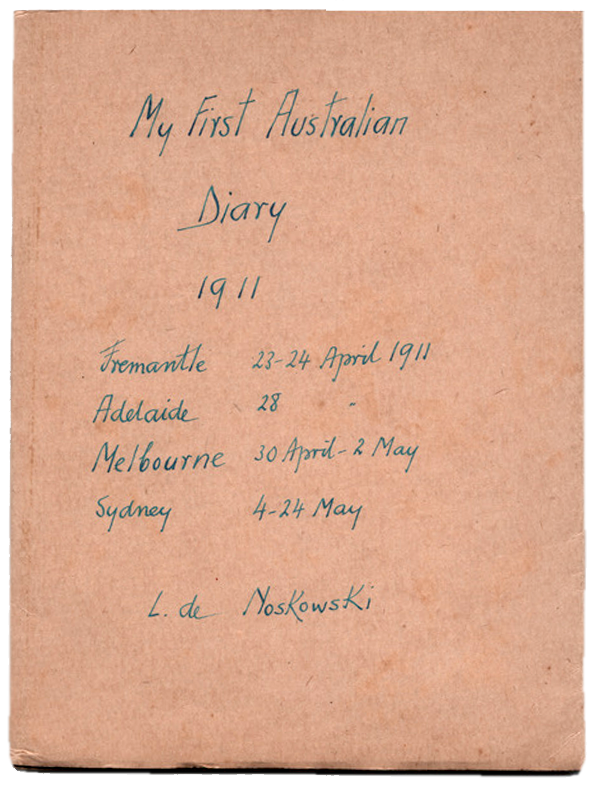 My First Australian
Diary
1911
Fremantle 23-24 April 1911
Adelaide 28 "
Melbourne 30 April - 2 May
Sydney 4-24 May
L. de Noskowski